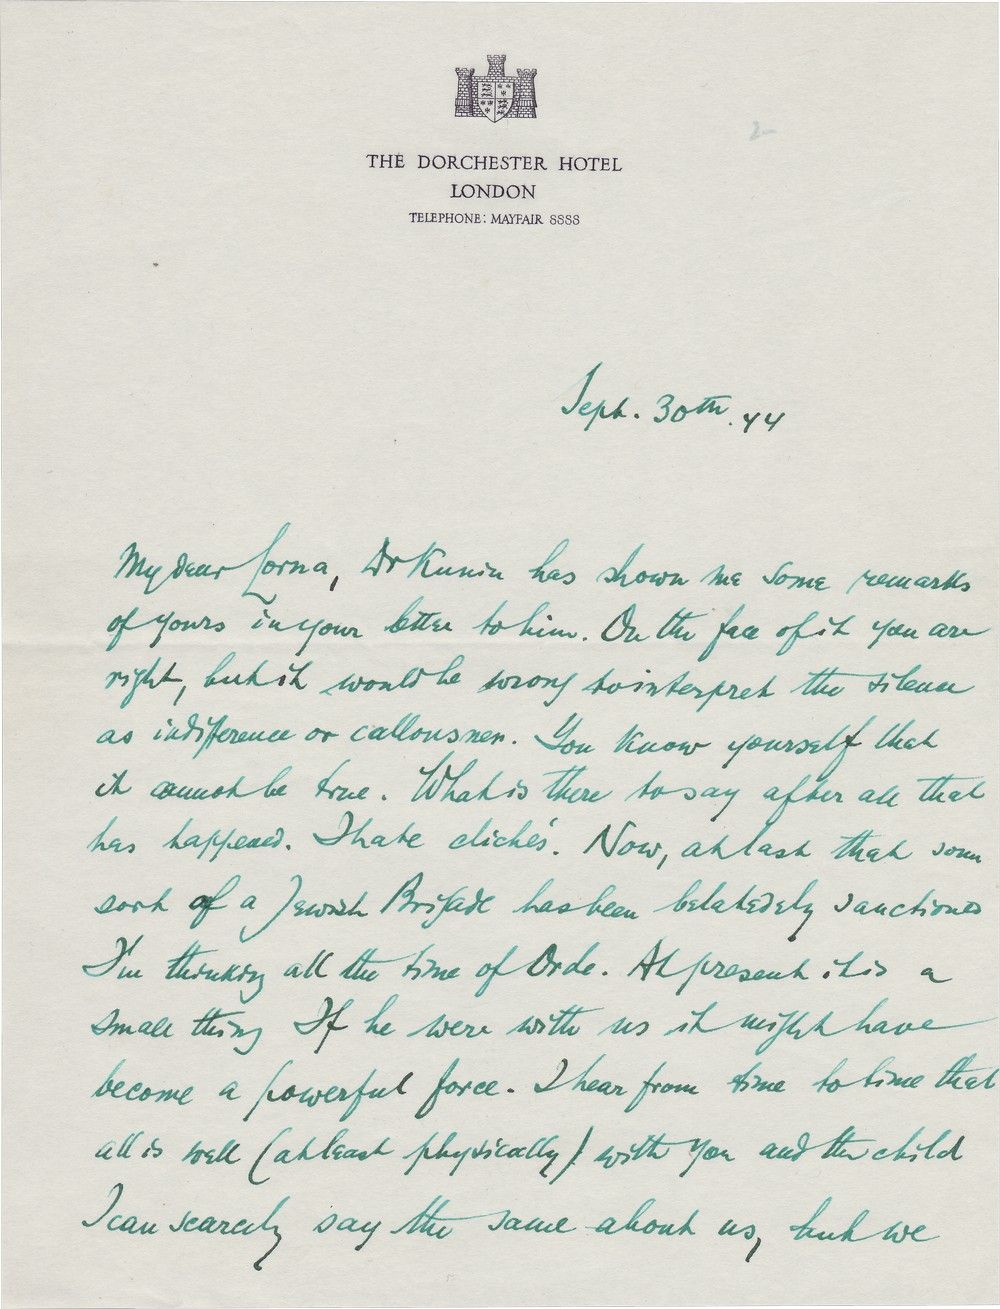 2
THE DORCHESTER HOTEL
LONDON
TELEPHONE: MAYFAIR 8888
Sept. 30th. 44
My dear Lorna, Dr Kunin has shown me some remarks
of yours in your letter to him. On the face of it you are
right, but it would be wrong to interpret the silence
as indifference or callousness. You know yourself that
it cannot be true. What is there to say after all that
has happened. I hate clichés. Now, at last that some
sort of a Jewish Brigade has been belatedly sanctioned
I'm thinking all the time of Orde. At present it is a
small thing If he were with us it might have
become a powerful force. I hear from time to time that
all is well (at least physically) with you and the child
I can scarcely say the same about us, but we